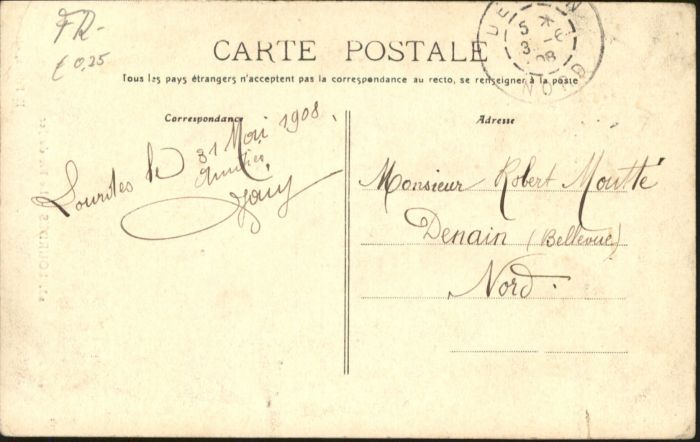 FR-
€ 0,25
CARTE POSTALE
Tous les pays étrangers n'acceptent pas la correspondance au recto, se renseigner à la poste
Correspondance
Adresse
Lourdes le 31 Mai 1908.
Amitiés,
Monsieur Robert Moutté
Denain (Bellevue)
Nord.
5 *
3 -6
08
NORD